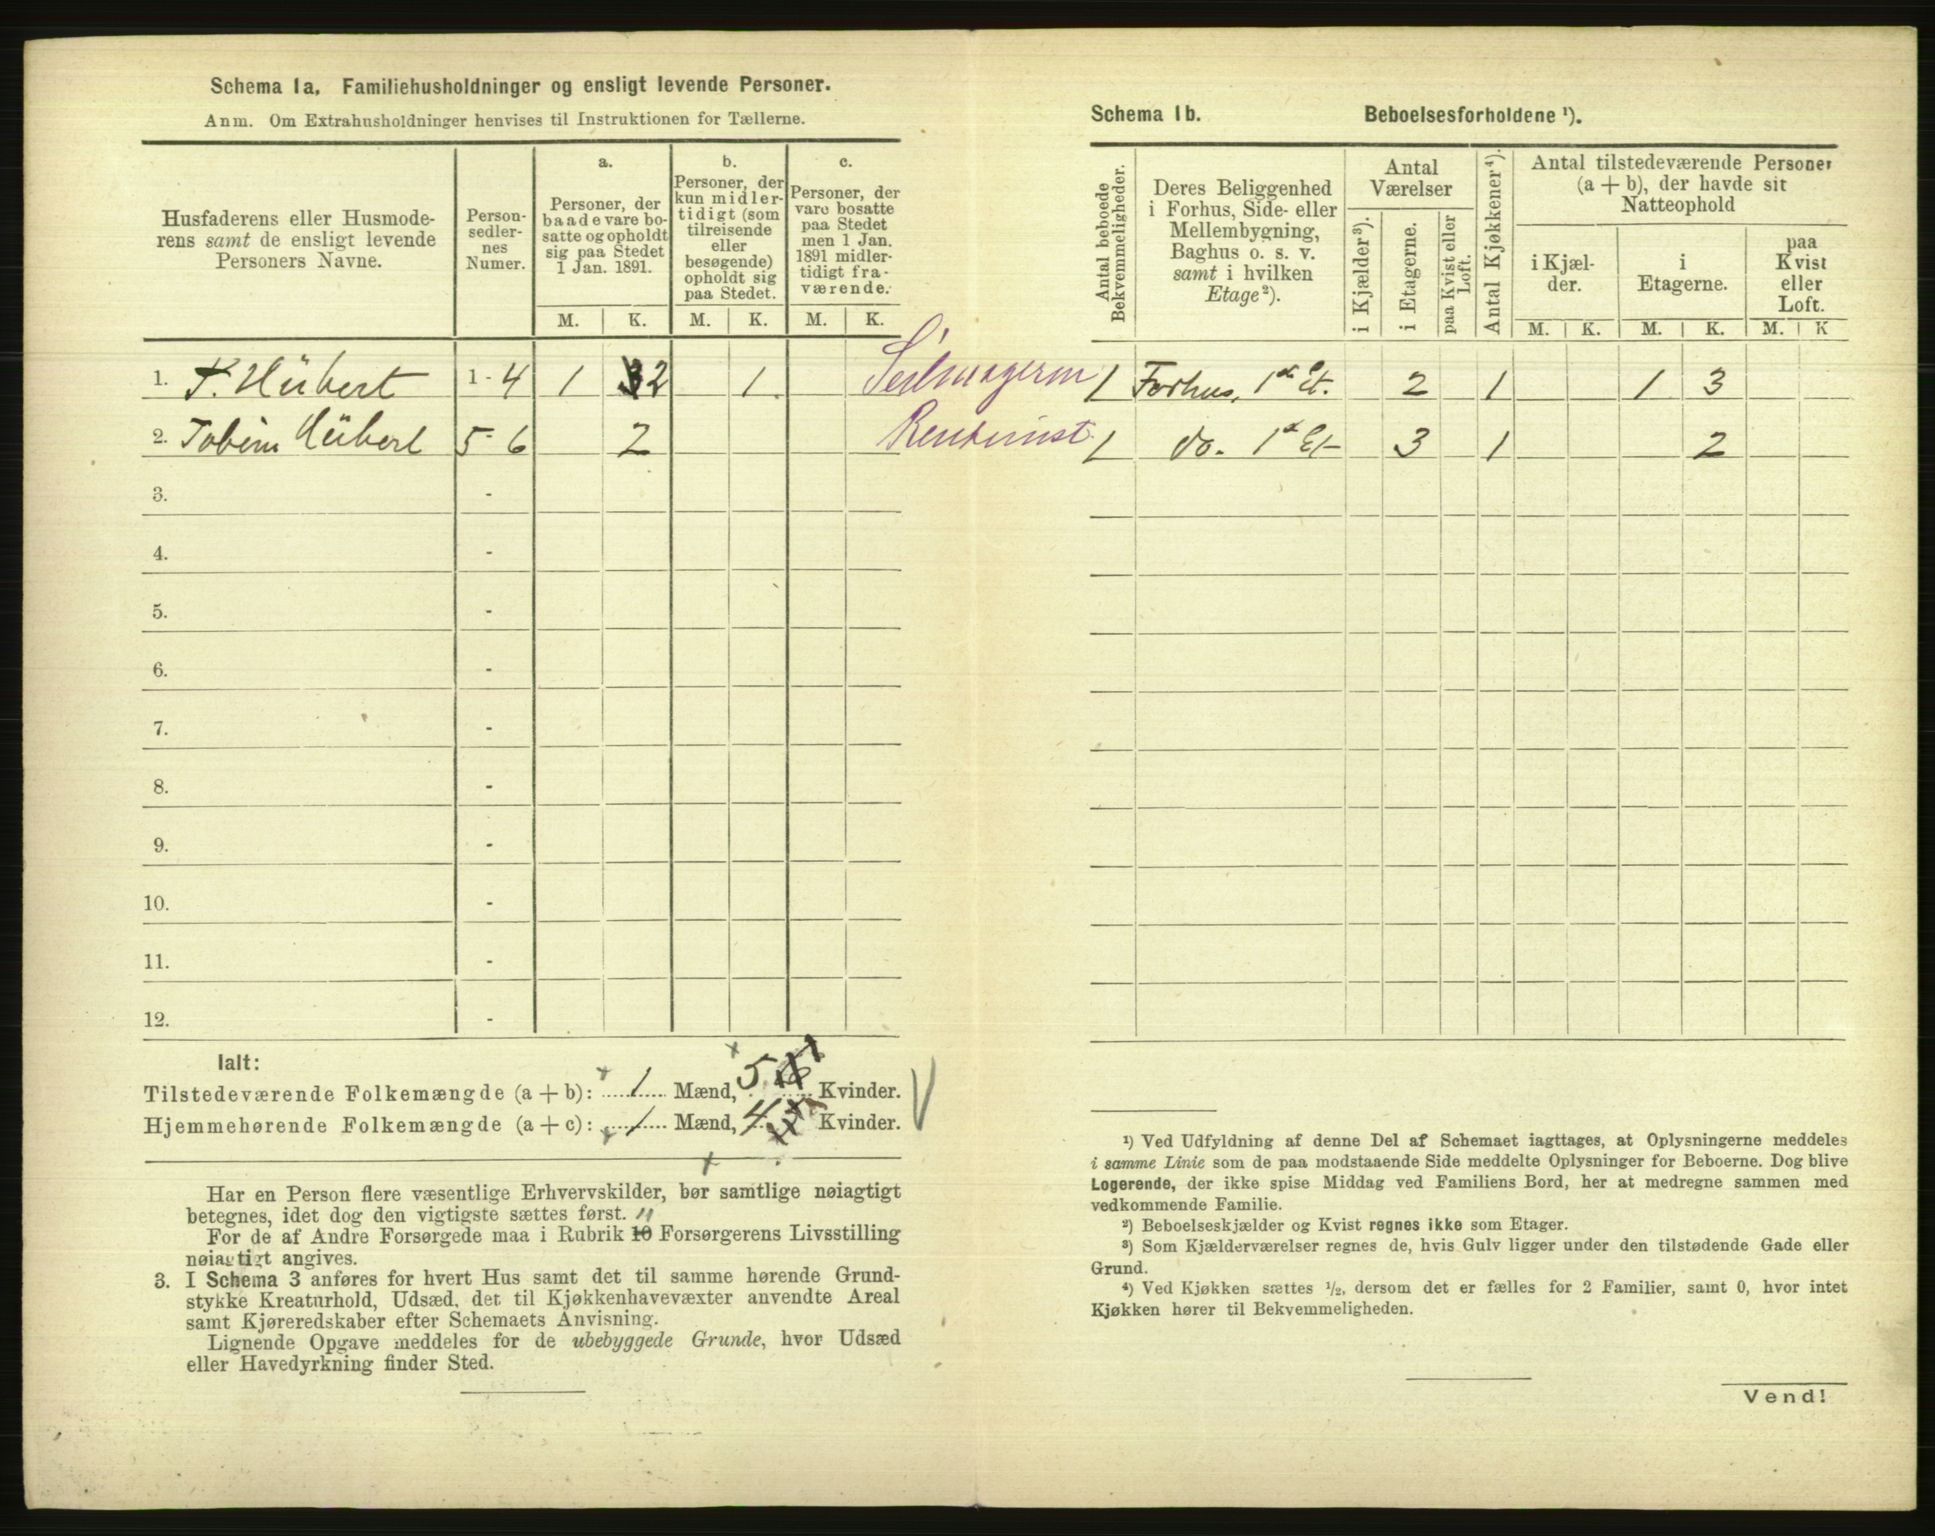 Schema 1a. Familiehusholdninger og ensligt levende Personer.
Anm. Om Extrahusholdninger henvises til Instruktionen for Tællerne.
Husfaderens eller Husmoderens samt de ensligt levende Personers Navne.
Personsedlernes Numer.
a.
Personer, der baade vare bosatte og opholdt sig paa Stedet 1 Jan. 1891.
b.
Personer, der kun midlertidigt (som tilreisende eller besøgende) opholdt sig paa Stedet.
c.
Personer, der vare bosatte paa Stedet men 1 Jan. 1891 midlertidigt fraværende.
M. K. M. K. M. K.
1. F. Hübert 1 - 4 1 2 1
2. Hübert 5 - 6 2
3. -
4. -
5. -
6. -
7. -
8. -
9. -
10. -
11. -
12. -
Ialt:
Tilstedeværende Folkemængde (a + b): 1 Mænd, 5 Kvinder.
Hjemmehørende Folkemængde (a + c): 1 Mænd, 4 Kvinder.
Har en Person flere væsentlige Erhvervskilder, bør samtlige nøiagtigt
betegnes, idet dog den vigtigste sættes først.
11
For de af Andre Forsørgede maa i Rubrik 10 Forsørgerens Livsstilling
nøiagtigt angives.
3. I Schema 3 anføres for hvert Hus samt det til samme hørende Grund-
stykke Kreaturhold, Udsæd, det til Kjøkkenhavevæxter anvendte Areal
samt Kjøreredskaber efter Schemaets Anvisning.
Lignende Opgave meddeles for de ubebyggede Grunde, hvor Udsæd
eller Havedyrkning finder Sted.
Schema 1b. Beboelsesforholdene ¹).
Antal beboede Bekvemmeligheder.
Deres Beliggenhed i Forhus, Side- eller Mellembygning, Baghus o. s. v. samt i hvilken Etage²).
Antal Værelser
i Kjælder³).
i Etagerne.
paa Kvist eller Loft.
Antal Kjøkkener⁴).
Antal tilstedeværende Personer (a + b), der havde sit Natteophold
i Kjælder.
i Etagerne.
paa Kvist eller Loft.
M. K. M. K. M. K
Seilmagerm 1 Forhus, 1ste Et. 2 1 1 3
Rentenist 1 do. 1ste Et 3 1 2
¹) Ved Udfyldning af denne Del af Schemaet iagttages, at Oplysningerne meddeles
i samme Linie som de paa modstaaende Side meddelte Oplysninger for Beboerne. Dog blive
Logerende, der ikke spise Middag ved Familiens Bord, her at medregne sammen med
vedkommende Familie.
²) Beboelseskjælder og Kvist regnes ikke som Etager.
³) Som Kjælderværelser regnes de, hvis Gulv ligger under den tilstødende Gade eller
Grund.
⁴) Ved Kjøkken sættes ½, dersom det er fælles for 2 Familier, samt 0, hvor intet
Kjøkken hører til Bekvemmeligheden.
Vend!